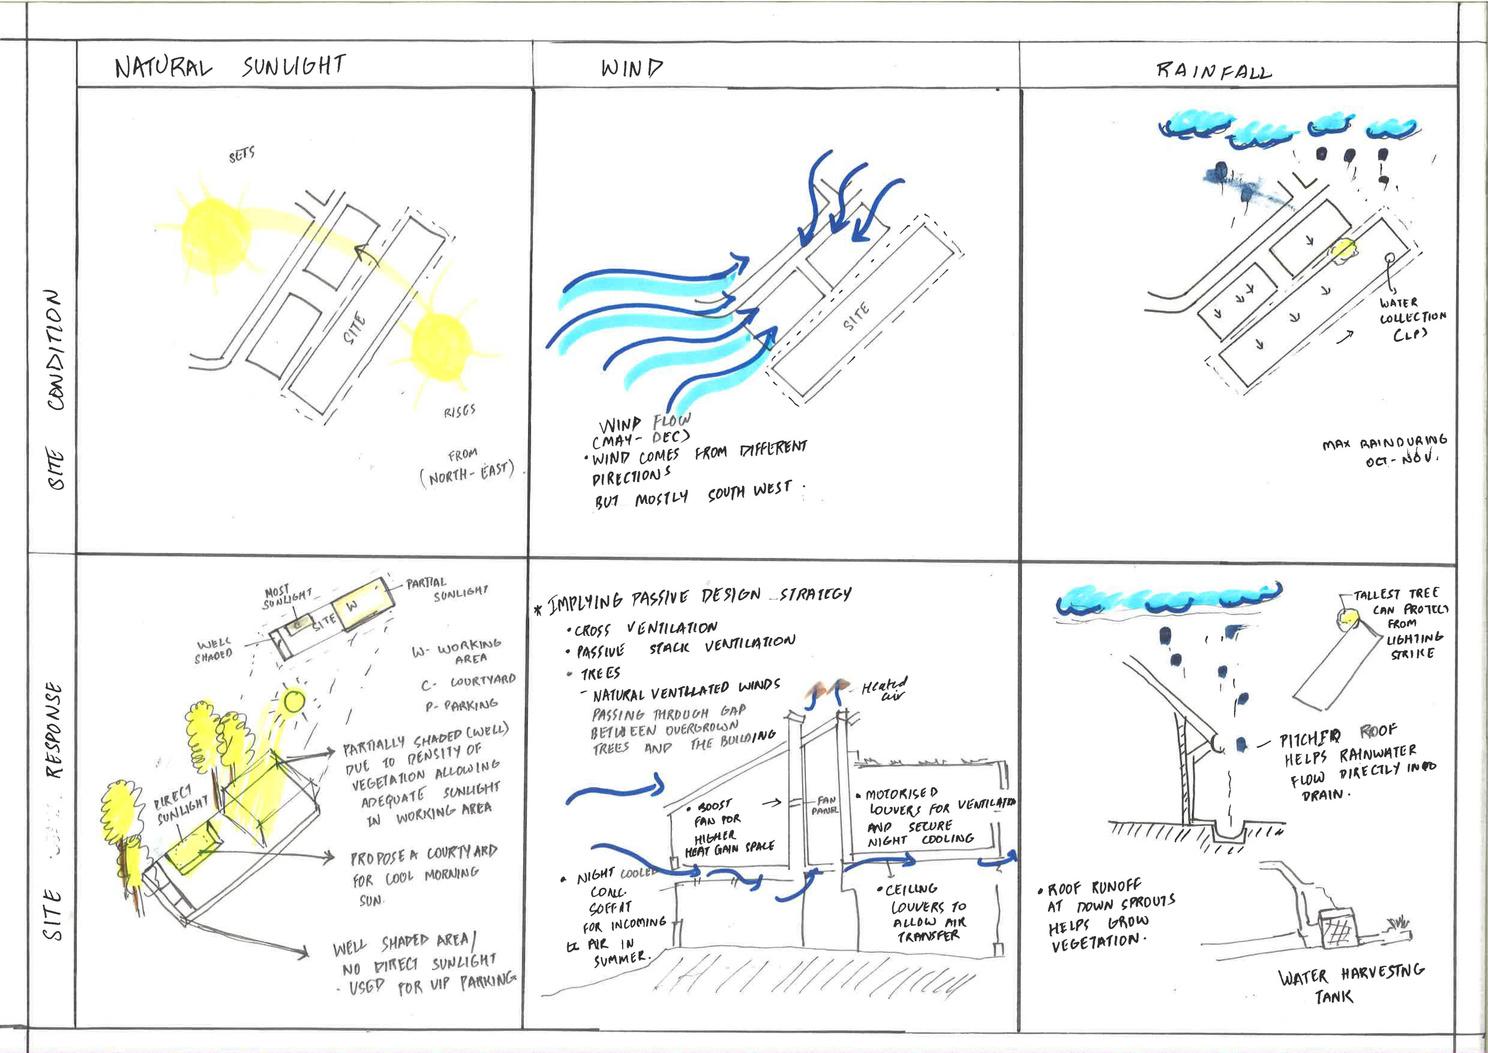 NATURAL SUNLIGHT
WIND
RAINFALL
SITE CONDITION
SETS
SITE
RISES
FROM
(NORTH-EAST).
SITE
WIND FLOW
(MAY-DEC)
• WIND COMES FROM DIFFERENT
DIRECTIONS
BUT MOSTLY SOUTH WEST.
WATER
COLLECTION
(LP)
MAX RAIN DURING
OCT-NOV.
SITE RESPONSE
MOST
SUNLIGHT
PARTIAL
SUNLIGHT
WELL
SHADED
C
SITE
W
W- WORKING
AREA
C- COURTYARD
P- PARKING
DIRECT
SUNLIGHT
PARTIALLY SHADED (WELL)
DUE TO DENSITY OF
VEGETATION ALLOWING
ADEQUATE SUNLIGHT
IN WORKING AREA
PROPOSE A COURTYARD
FOR COOL MORNING
SUN.
WELL SHADED AREA/
NO DIRECT SUNLIGHT
- USED FOR VIP PARKING
* IMPLYING PASSIVE DESIGN STRATEGY
• CROSS VENTILATION
• PASSIVE STACK VENTILATION
• TREES
- NATURAL VENTILATED WINDS
PASSING THROUGH GAP
BETWEEN OVERGROWN
TREES AND THE BUILDING
Heated
air
• BOOST
FAN FOR
HIGHER
HEAT GAIN SPACE
FAN
PANEL
• MOTORISED
LOUVERS FOR VENTILATION
AND SECURE
NIGHT COOLING
• NIGHT COOLED
CONC.
SOFFAT
FOR INCOMING
AIR IN
SUMMER.
• CEILING
LOUVERS TO
ALLOW AIR
TRANSFER
TALLEST TREE
CAN PROTECT
FROM
LIGHTING
STRIKE
PITCHED ROOF
HELPS RAINWATER
FLOW DIRECTLY INTO
DRAIN.
• ROOF RUNOFF
AT DOWN SPROUTS
HELPS GROW
VEGETATION.
WATER HARVESTNG
TANK